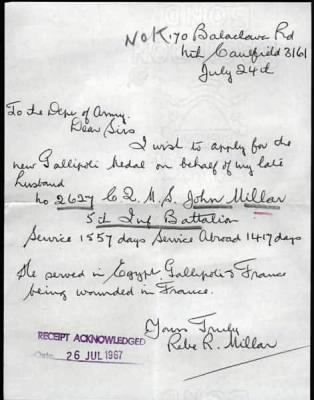 NoK. 170 Balaclava Rd
Nth Caulfield 3161
July 24th
To the Dept of Army.
Dear Sirs
I wish to apply for the
new Gallipoli Medal on behalf of my late
husband
No 2627 C. Q. M. S. John Millar
5th Inf Battalion
Service 1557 days Service Abroad 1417 days
He served in Egypt. Gallipoli & France
being wounded in France.
Yours Truly
Rebe R. Millar
RECEIPT ACKNOWLEDGED
Date 26 JUL 1967